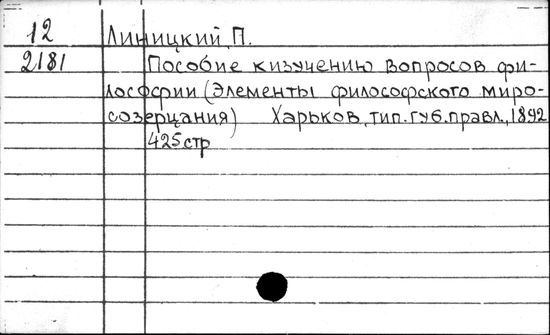 12 Линицкий П.
2181 Пособие к изучению вопросов фи-
лософии (Элементы философского миро-
созерцания) Харьков, тип. губ. правл., 1892
425 стр